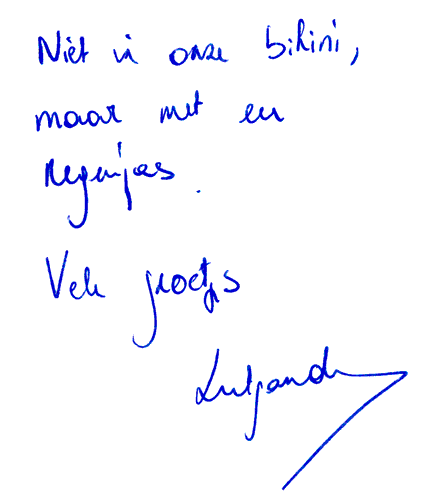 Niet in onze bikini,
maar met een
regenjas.
Vele groetjes